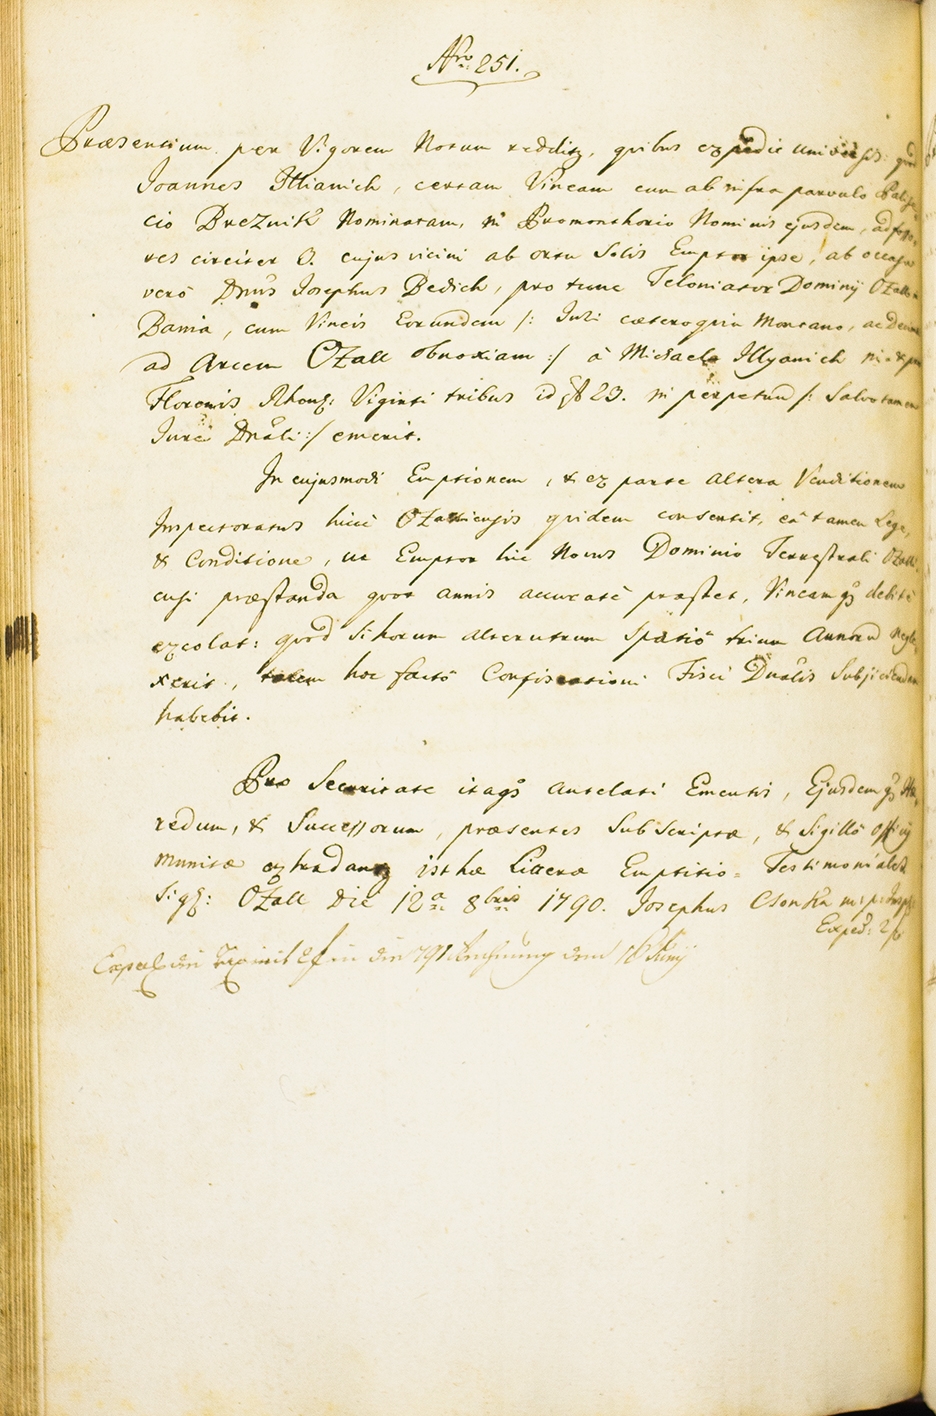 Nro 251.
Præsentium per Vigorem Notum redditz, quibus expedit universis: quod
Joannes Illianich, certam Vineam cum ab infra parvulo
cio Breznik Nominatam, in Promonthorio Nominis ejusdem, ad fosso-
res circiter 3. cujus vicini ab ortu Solis Emptor ipse, ab occasu
verò Dnus Josephus Bedich, pro tunc Teloniator Dominij
Bania, cum Vineis Eorundem /: Juri cæteroquin Montano, ac
ad Arcem Ozall obnoxiam :/ à Michaele Illyanich
Florenis Rhong: Viginti tribus id est 23. in perpetuu /: Salvo tamen
Jure Dnali :/ emerit.
In cujusmodi Emptionem, & ex parte altera Venditionem
Inspectoratus hicce Ozaliensis quidem consentit, eâ tamen Lege,
& Conditione, ut Emptor hic Novus Dominio Terrestrali Ozalli-
ensi præstanda quot annis accuratè præstet, Vineamqz debitè
excolat: quod si horum alterutrum Spatiô trium Annoru Negle-
xerit, talem hoc factô Confiscationi Fisci Dnalis Subjiciendam
habebit.
Pro Securitate itaqz antelati Ementis, Ejusdemqz Hæ-
redum, & Successorum, præsentes Subscriptæ, & Sigillô Officij
Munitæ extradantz isthæ Literæ Emptitio = Testimoniales.
Sigz: Ozall die 12a 8bris 1790. Josephus Csonka m: p: Insp:
Exped: 2 f
in die 791 Rechnung dem